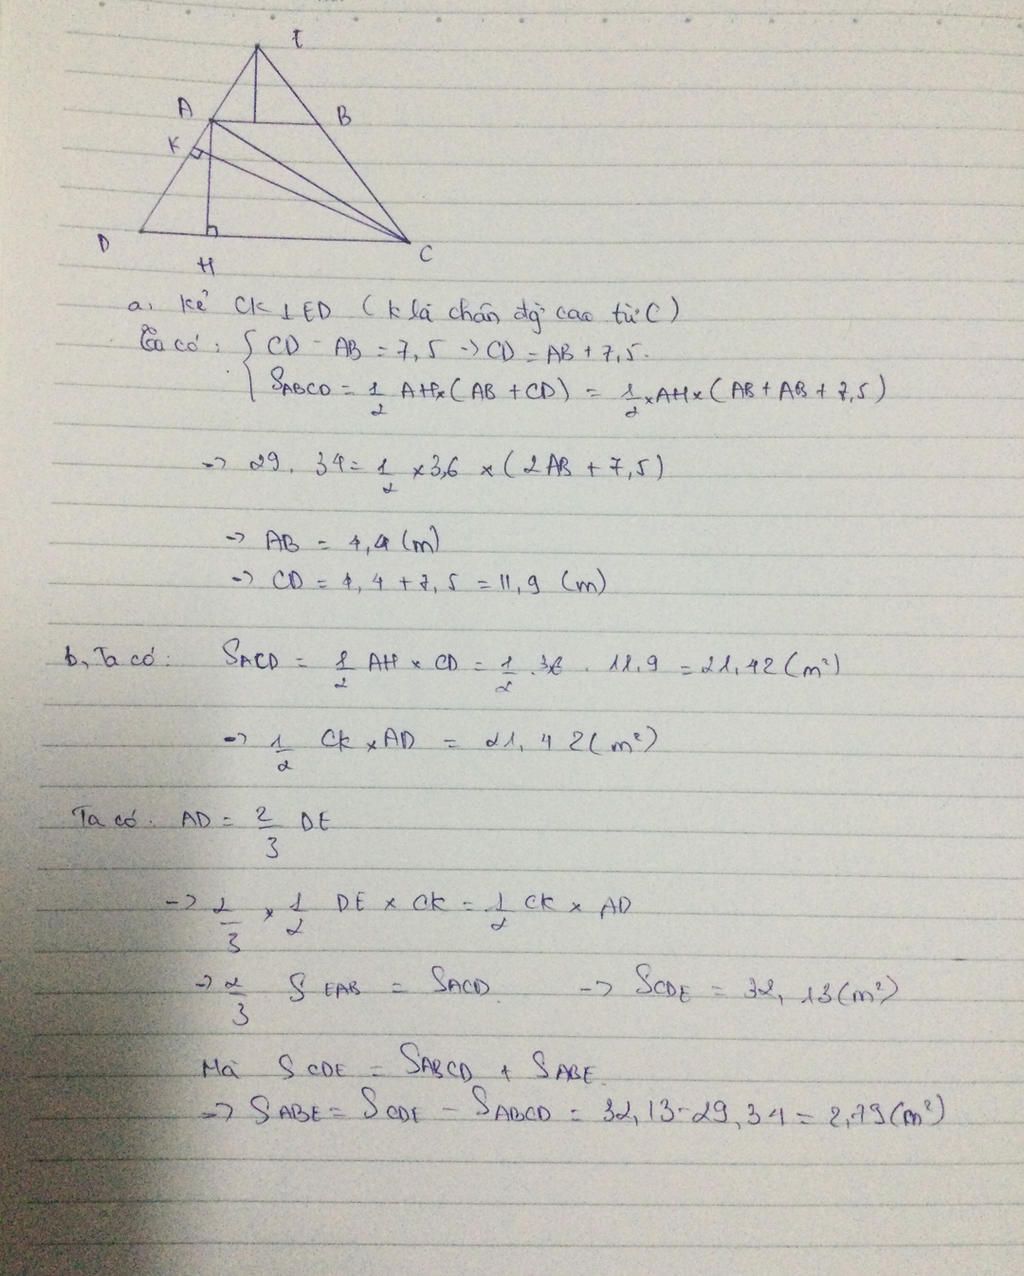 E
A
B
K
D
H
C
a, kẻ CK ⊥ ED ( K là chân đg cao từ C )
Ta có : { CD - AB = 7,5 -> CD = AB + 7,5.
S_ABCD = 1/2 AH x ( AB + CD ) = 1/2 x AH x ( AB + AB + 7,5 )
-> 29,34 = 1/2 x 3,6 x ( 2AB + 7,5 )
-> AB = 4,4 (m)
-> CD = 4,4 + 7,5 = 11,9 (m)
b, Ta có : S_ACD = 1/2 AH x CD = 1/2 . 3,6 . 11,9 = 21,42 (m²)
-> 1/2 CK x AD = 21,42 (m²)
Ta có : AD = 2/3 DE
-> 2/3 x 1/2 DE x CK = 1/2 CK x AD
-> 2/3 S_EAB = S_ACD. -> S_CDE = 32,13 (m²)
Mà S_CDE = S_ABCD + S_ABE.
-> S_ABE = S_CDE - S_ABCD = 32,13 - 29,34 = 2,79 (m²)